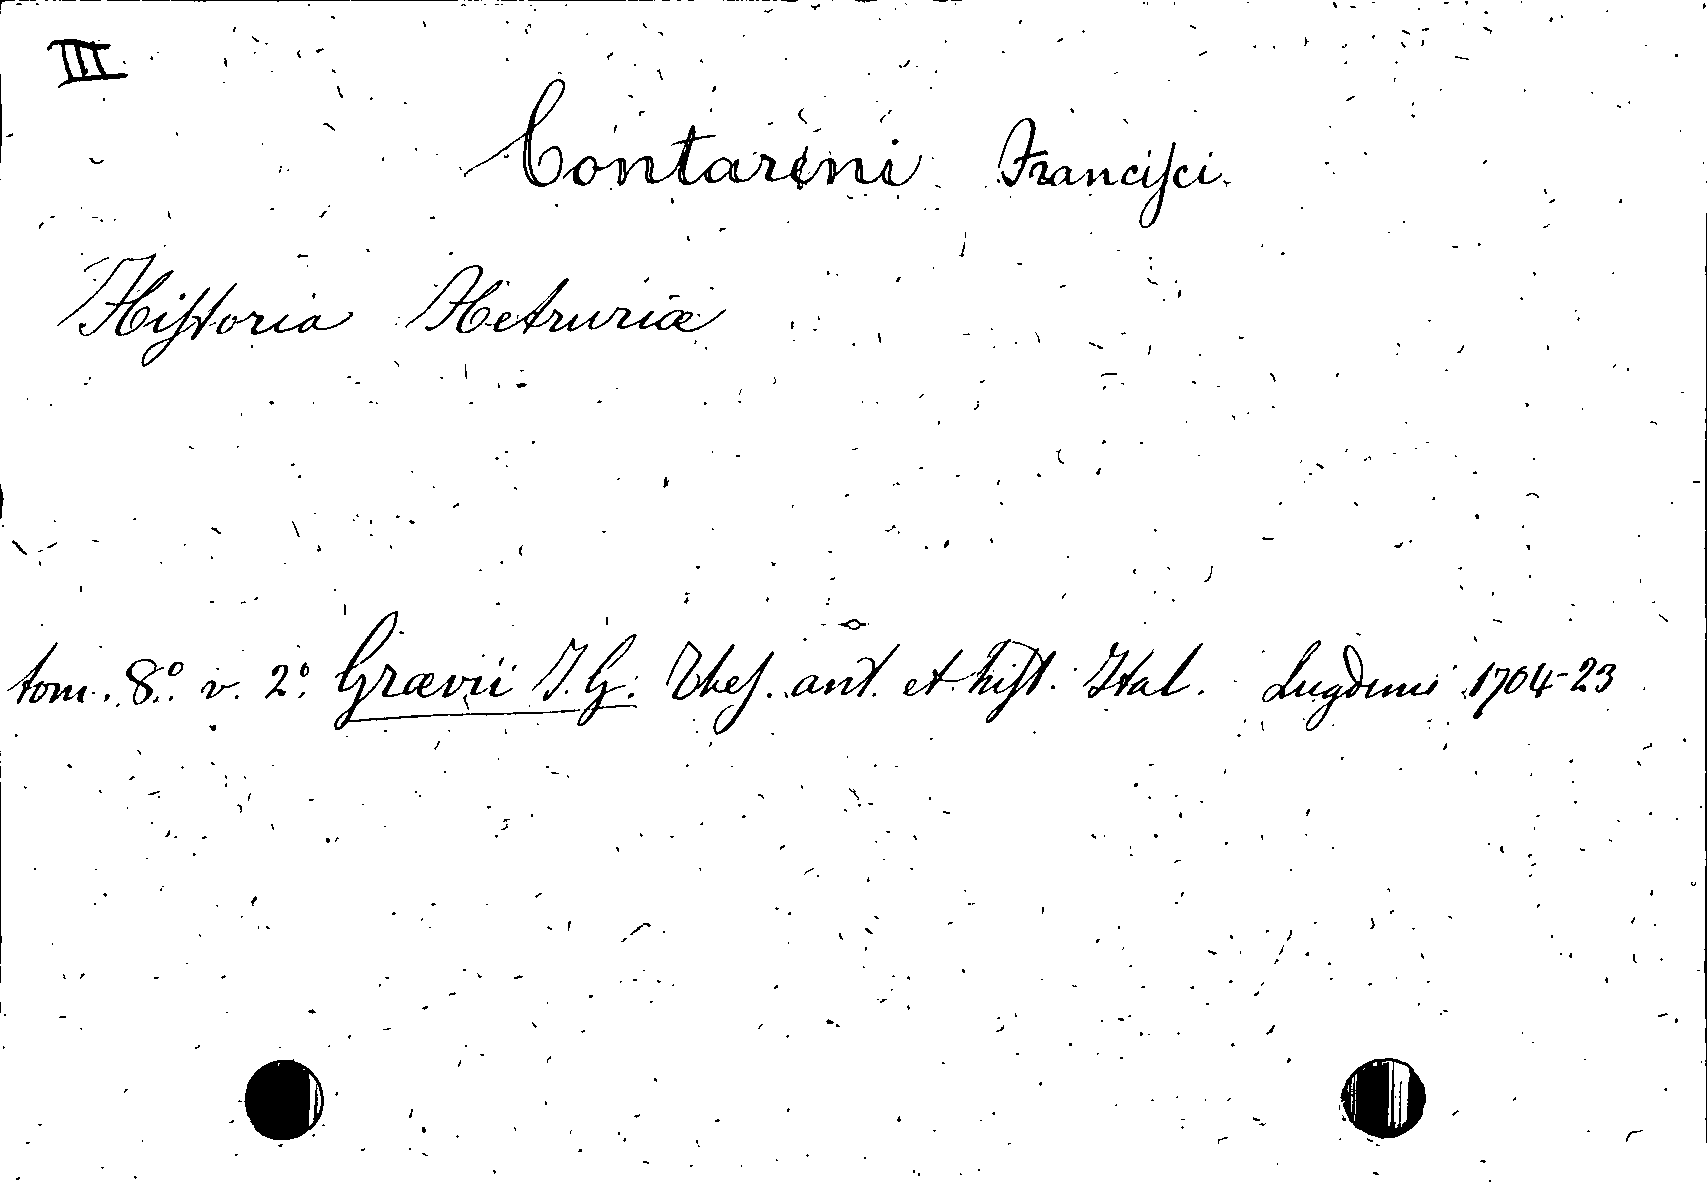 III
Contarini Franciſci.
Hiſtoria Hetruriæ
tom. 8º. v. 2º. Grævii J. G. Theſ. ant. et hiſt. Ital. Lugduni 1704-23